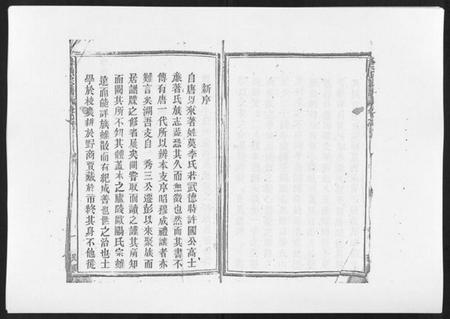 新序
自唐以來著姓莫李氏若武德時許國公高士
廉著氏族志蓋恐其久而無徵也然而其書不
傳有唐一代所以辨本支序昭穆成禮讓者亦
難言矣湖吾支自 秀三公遷彭以來聚族而
居譜牒之修者屢矣閒嘗取而讀之謹其所知
而闕其所不知其體蓋本之廬陵歐陽氏宗雖
遠而能詳族雖散而有紀成善也世之治也士
學於校農耕於野商賈藏於市終其身不他徙